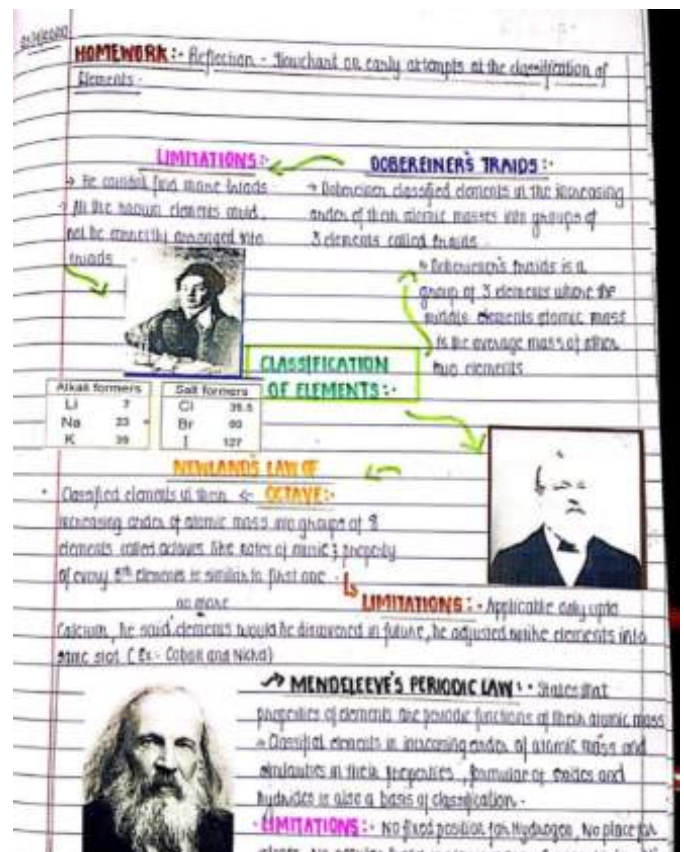 HOMEWORK :- Reflection - flowchart on early attempts at the classification of
Elements -
LIMITATIONS :-
→ He couldn't find more triads
→ All the known elements could
not be correctly arranged into
triads
DOBEREINER'S TRAIDS :-
→ Dobereiner classified elements in the increasing
order of their atomic masses into groups of
3 elements called triads
→ Dobereiner's triads is a
group of 3 elements where the
middle elements atomic mass
is the average mass of other
two elements
CLASSIFICATION
OF ELEMENTS :-
Alkali formers
Li 7
Na 23
K 39
Salt formers
Cl 35.5
Br 80
I 127
NEWLAND'S LAW OF
OCTAVE :-
Classified elements in their
increasing order of atomic mass into groups of 8
elements called octaves like notes of music & property
of every 8th elements is similar to first one.
LIMITATIONS :- Applicable only upto
no more
Calcium, he said elements would be discovered in future, he adjusted unlike elements into
same slot. (Ex - Cobalt and Nickel)
→ MENDELEEVE'S PERIODIC LAW :- States that
properties of elements are periodic functions of their atomic mass
→ Classified elements in increasing order of atomic mass and
similarities in their properties, formulae of oxides and
hydrides is also a basis of classification -
LIMITATIONS :- No fixed position for Hydrogen, No place for